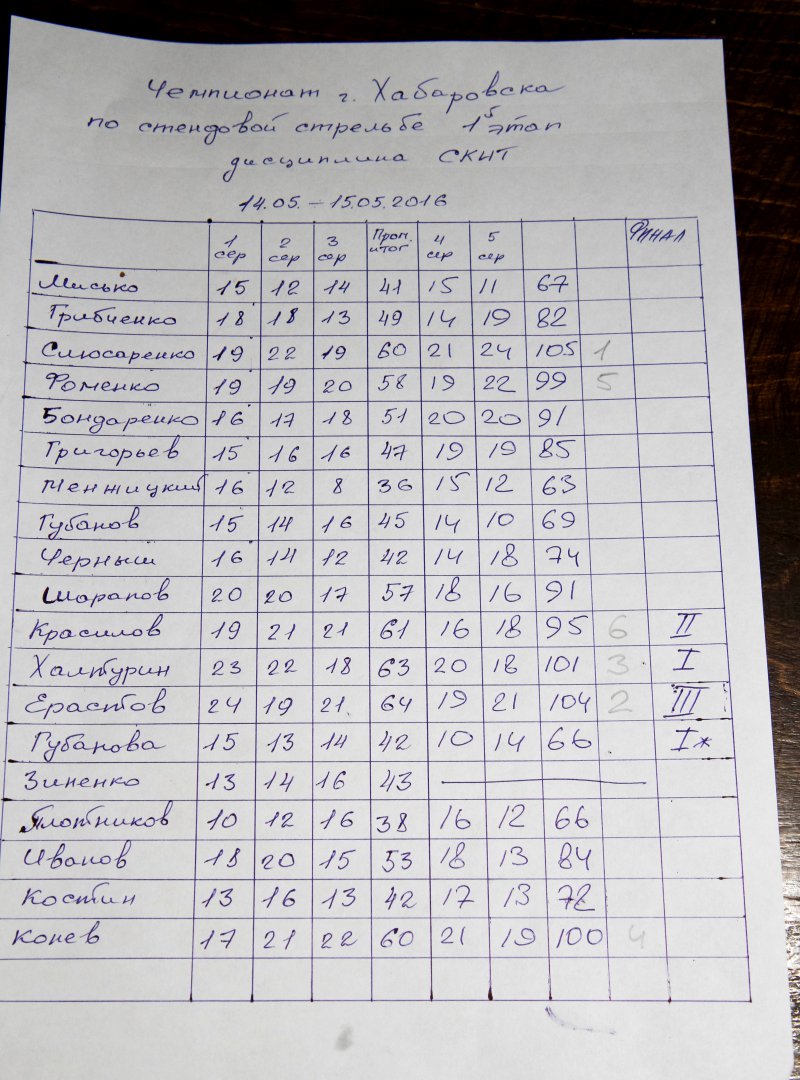 Чемпионат г. Хабаровска
по стендовой стрельбе 1й этап
дисциплина СКИТ
14.05. – 15.05.2016
1 сер 2 сер 3 сер Пром. итог 4 сер 5 сер ФИНАЛ
Мисько 15 12 14 41 15 11 67
Грибченко 18 18 13 49 14 19 82
Слюсаренко 19 22 19 60 21 24 105 1
Фоменко 19 19 20 58 19 22 99 5
Бондаренко 16 17 18 51 20 20 91
Григорьев 15 16 16 47 19 19 85
Менжицкий 16 12 8 36 15 12 63
Губанов 15 14 16 45 14 10 69
Черныш 16 14 12 42 14 18 74
Шарапов 20 20 17 57 18 16 91
Красилов 19 21 21 61 16 18 95 6 II
Халтурин 23 22 18 63 20 18 101 3 I
Ерастов 24 19 21 64 19 21 104 2 III
Губанова 15 13 14 42 10 14 66 I*
Зиненко 13 14 16 43
Плотников 10 12 16 38 16 12 66
Иванов 18 20 15 53 18 13 84
Костин 13 16 13 42 17 13 72
Конев 17 21 22 60 21 19 100 4